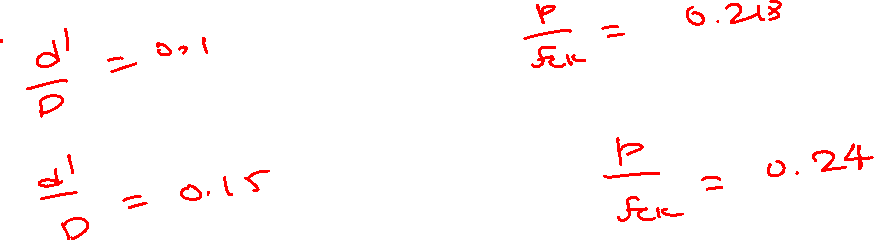 d'/D = 0.1 p/fck = 0.213
d'/D = 0.15 p/fck = 0.24